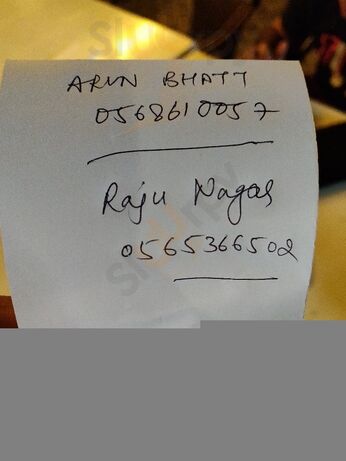 ARUN BHATT
0568610057
Raju Nagar
0565366502